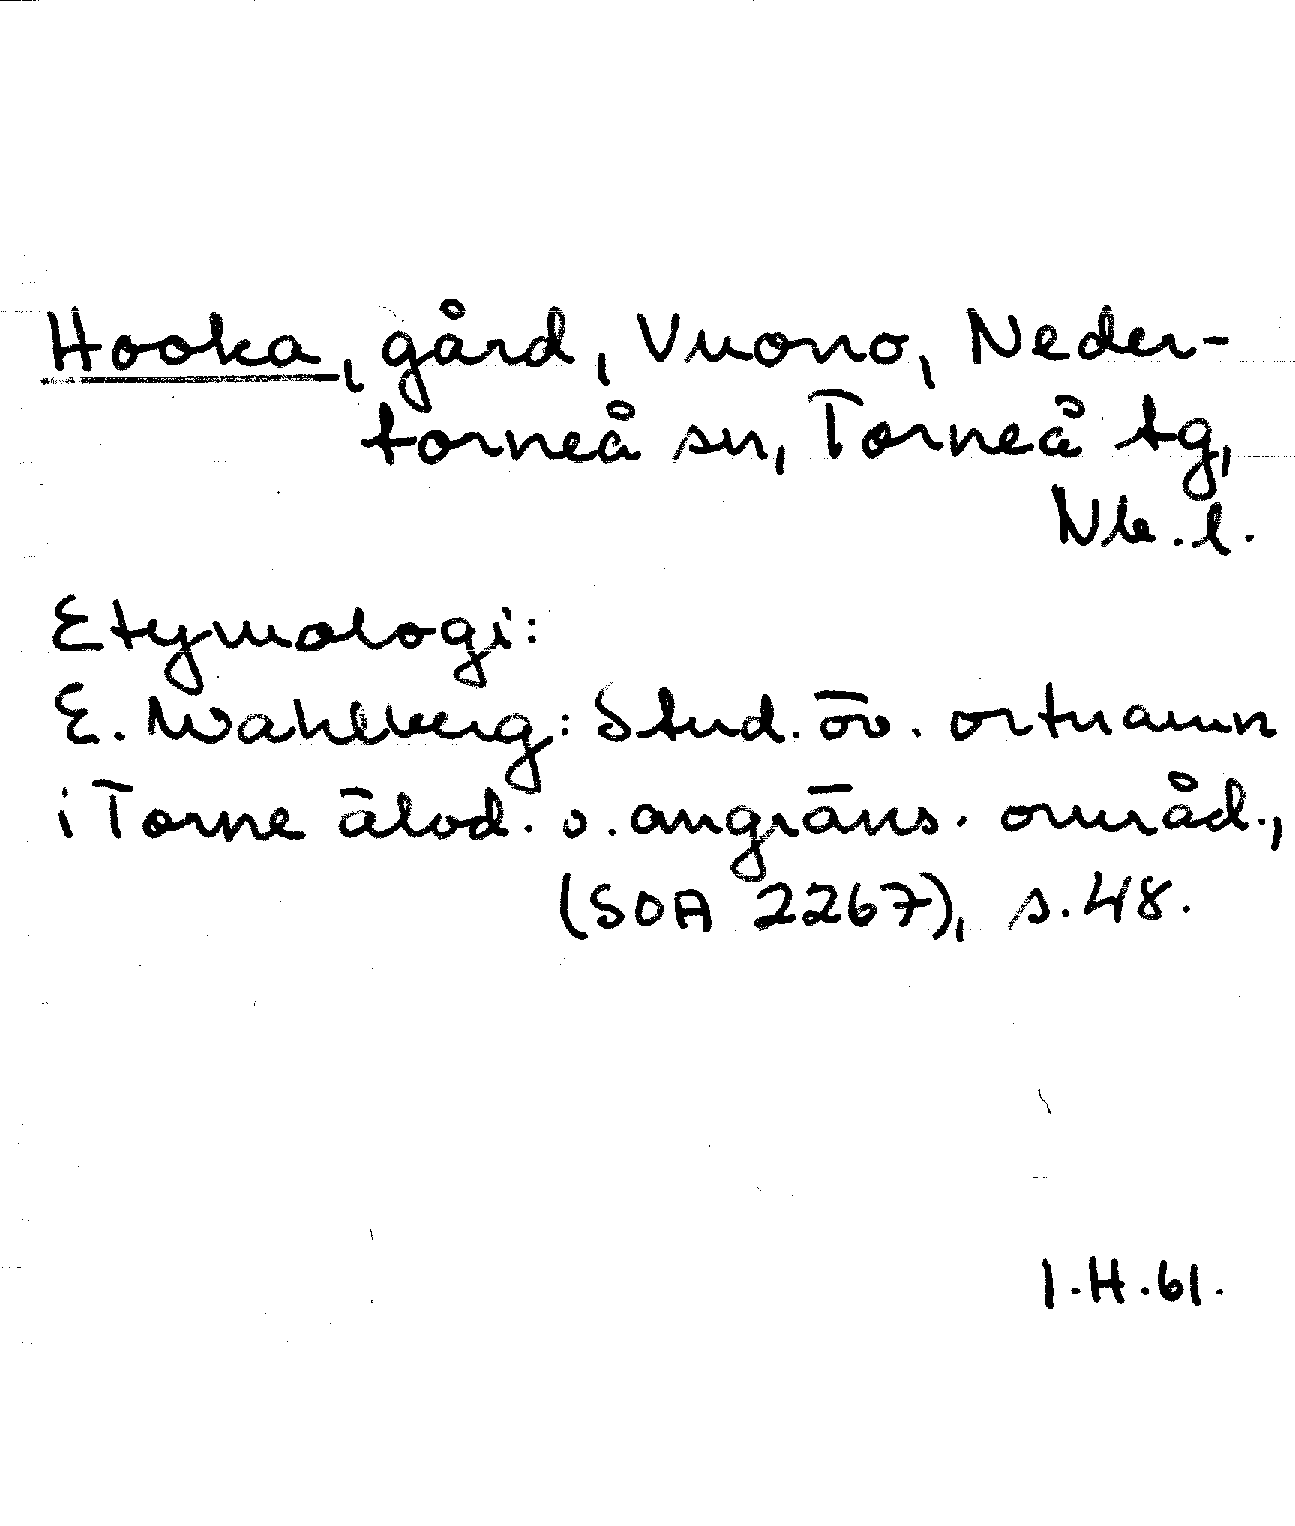 Hooka, gård, Vuono, Neder-
torneå sn, Torneå tg,
Nb. l.
Etymologi:
E. Wahlberg: Stud. öv. ortnamn
i Torne älvd. o. angräns. områd.,
(SOA 2267), s. 48.
I.H.61.